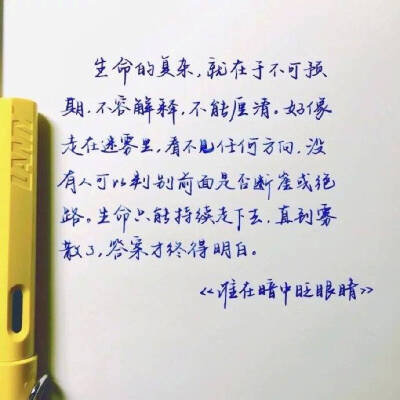 生命的复杂,就在于不可预
期.不容解释,不能厘清。好像
走在迷雾里,看不见任何方向,没
有人可以判别前面是否断崖或绝
路。生命只能持续走下去,直到雾
散了,答案才终得明白。
《谁在暗中眨眼睛》
LAMY